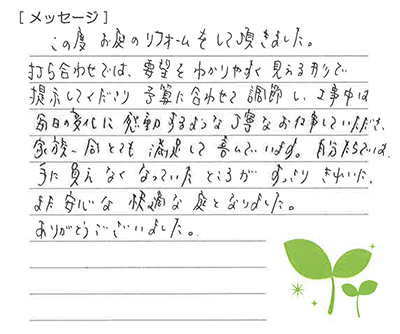 [メッセージ]
この度 お庭のリフォームをして頂きました。
打ち合わせでは、要望を わかりやすく 見える形で
提示してくださり 予算に合わせて 調節し、工事中は
毎日の変化に 感動するような 丁寧なお仕事していただき、
家族一同とても 満足して 喜んでいます。自分たちでは、
手に負えなくなっていた ところが すっきり きれいに、
また 安心な 快適な 庭となりました。
ありがとうございました。